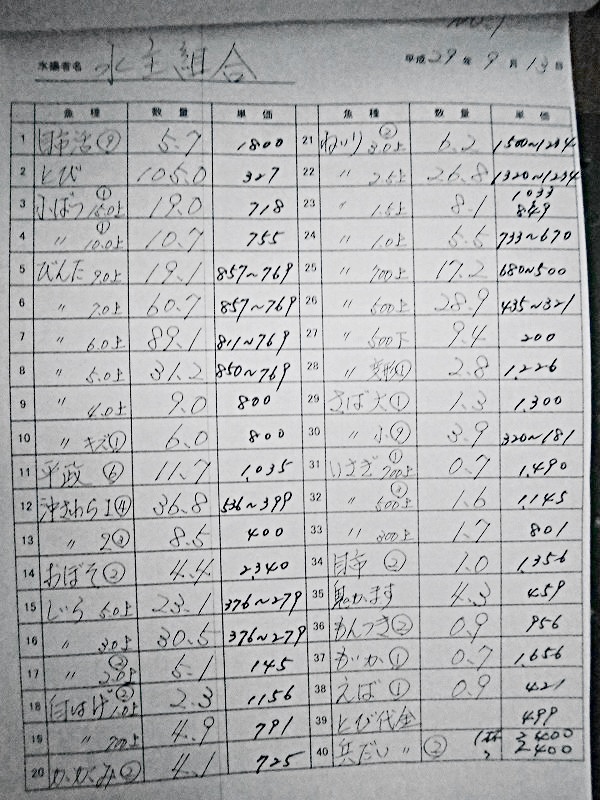 No.1
水揚者名 水主組合 平成29年9月13日
魚種 数量 単価 魚種 数量 単価
1 目市活⑨ 5.7 1800
2 とび 105.0 327
3 小ぶり ① 15.0上 19.0 718
4 〃 ① 10.0上 10.7 755
5 びんた 9.0上 19.1 857~769
6 〃 7.0上 60.7 857~769
7 〃 6.0上 89.1 811~769
8 〃 5.0上 31.2 850~769
9 〃 4.0上 9.0 800
10 〃 キズ① 6.0 800
11 平政 ⑥ 11.7 1,035
12 沖さわら 1④ 36.8 536~399
13 〃 2③ 8.5 400
14 おぼそ② 4.4 2,340
15 しいら 5.0上 23.1 376~279
16 〃 3.0上 30.5 376~279
17 〃 ② 2.0上 5.1 145
18 目はげ② 1.0上 2.3 1156
19 〃 700上 4.9 791
20 かがみ② 4.1 725
21 ねいり ② 3.0上 6.2 1500~1234
22 〃 2.5上 26.8 1320~1234
23 〃 1.5上 8.1 1033 849
24 〃 1.0上 5.5 733~670
25 〃 700上 17.2 680~500
26 〃 500上 28.9 435~321
27 〃 500下 9.4 200
28 〃 変形① 2.8 1,226
29 さば 大① 1.3 1,300
30 〃 小⑨ 3.9 320~181
31 いさぎ ① 700上 0.7 1,490
32 〃 500上 1.6 1,145
33 〃 300上 1.7 801
34 目市 ② 1.0 1,356
35 かます 4.3 459
36 もんつき② 0.9 956
37 がいか① 0.7 1,656
38 えば① 0.9 421
39 とび代金 499
40 兵だい 〃 ② 2400 2400